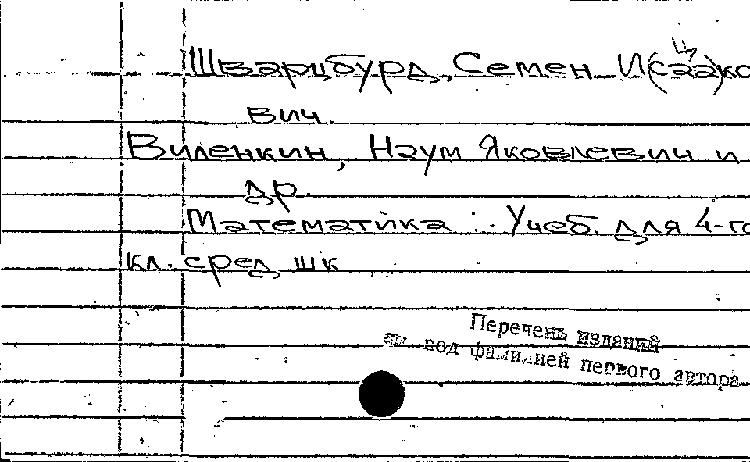 Шварцбурд, Семен И(саа)ко
вич.
Виленкин, Наум Яковлевич и
др.
Математика : Учеб. для 4-го
кл. сред. шк
Перечень изданий
см. под фамилией первого автора